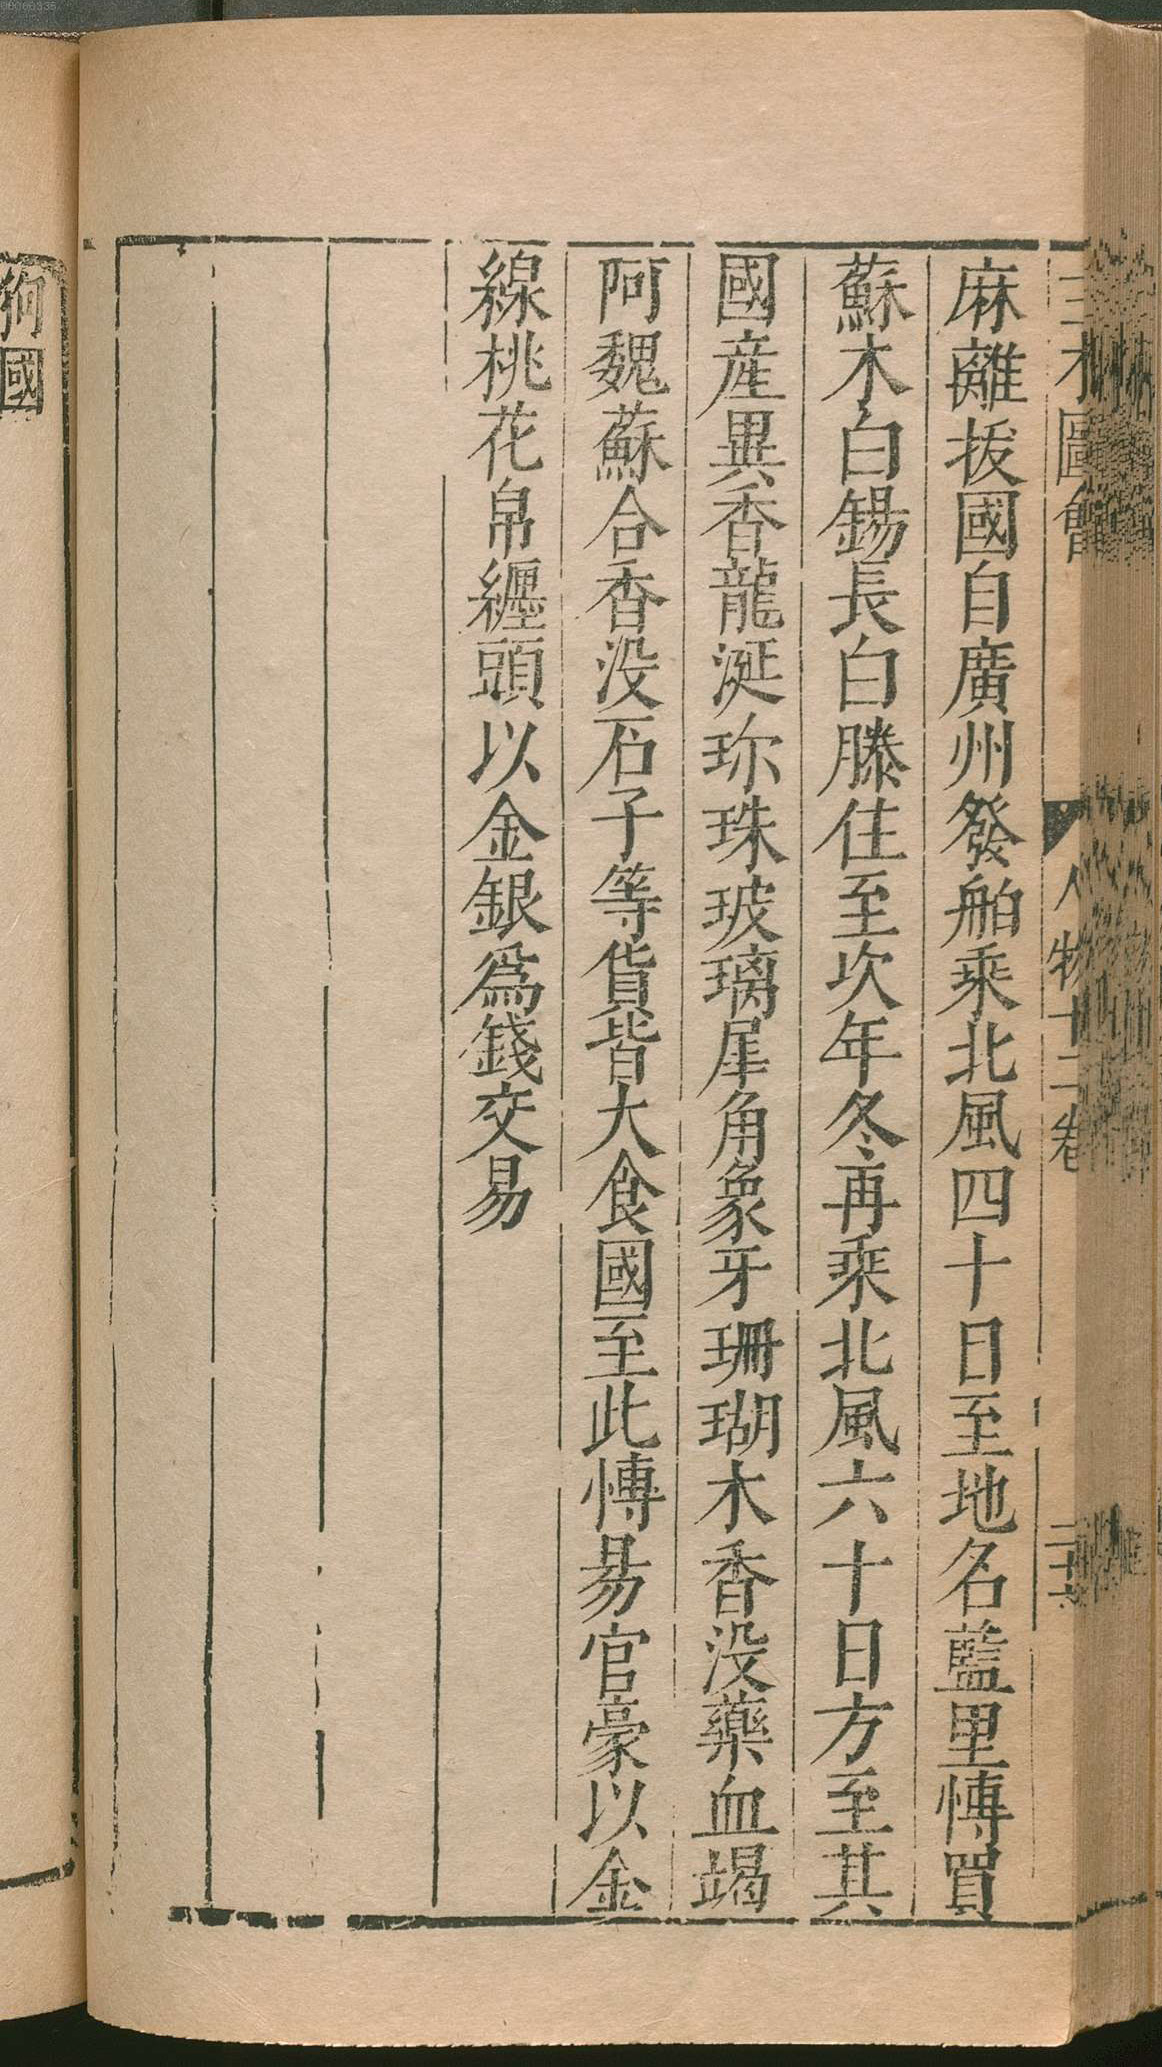 三才圖會
人物十二卷
二十六
麻離拔國自廣州發舶乘北風四十日至地名藍里慱買
蘇木白錫長白滕住至次年冬再乘北風六十日方至其
國産異香龍涎珎珠玻璃犀角象牙珊瑚木香没藥血竭
阿魏蘇合香没石子等貨皆大食國至此慱易官豪以金
線桃花帛纒頭以金銀爲錢交易
狗國